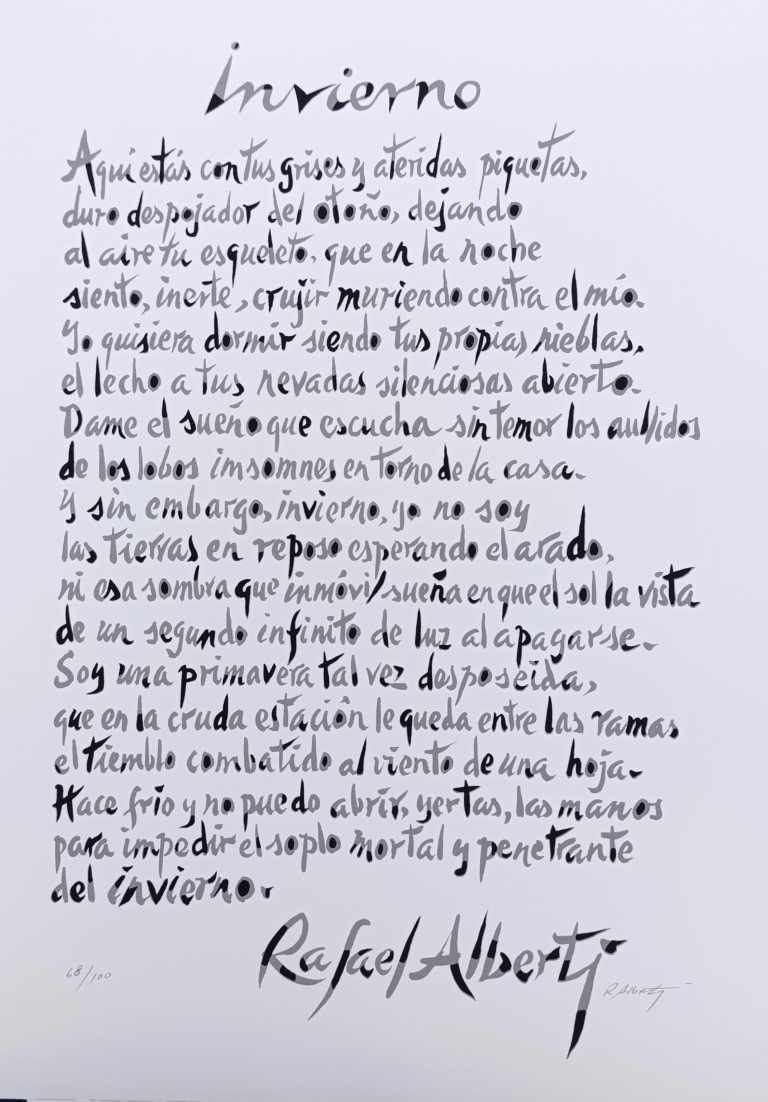 Invierno
Aquí estás con tus grises y ateridas piquetas,
duro despojador del otoño, dejando
al aire tu esqueleto, que en la noche
siento, inerte, crujir muriendo contra el mío.
Yo quisiera dormir siendo tus propias nieblas,
el lecho a tus nevadas silenciosas abierto.
Dame el sueño que escucha sin temor los aullidos
de los lobos imsomnes en torno de la casa.
Y sin embargo, invierno, yo no soy
las tierras en reposo esperando el arado,
ni esa sombra que inmóvil sueña en que el sol la vista
de un segundo infinito de luz al apagarse.
Soy una primavera tal vez desposeída,
que en la cruda estación le queda entre las ramas
el tiemblo combatido al viento de una hoja.
Hace frío y no puedo abrir, yertas, las manos
para impedir el soplo mortal y penetrante
del invierno.
Rafael Alberti
68/100
R. Alberti